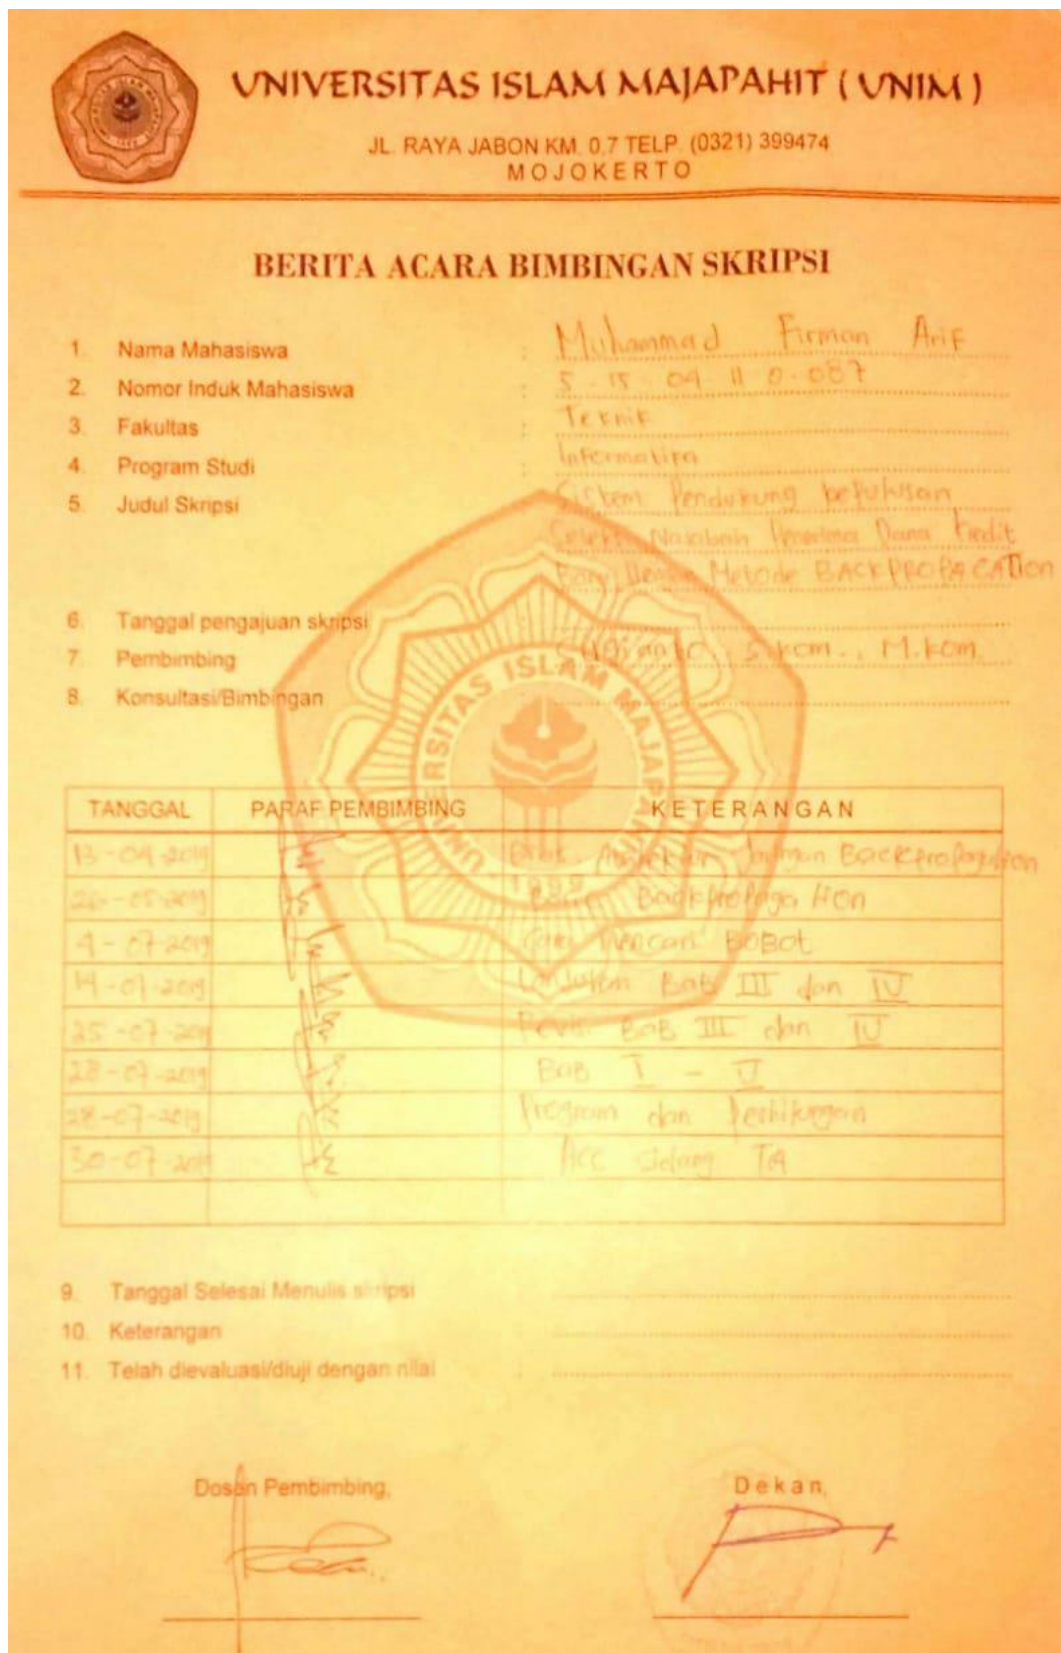 UNIVERSITAS ISLAM MAJAPAHIT ( UNIM )
JL. RAYA JABON KM. 0,7 TELP. (0321) 399474
MOJOKERTO
BERITA ACARA BIMBINGAN SKRIPSI
1. Nama Mahasiswa : Muhammad Firman Arif
2. Nomor Induk Mahasiswa : 5 - 15 04 11 0 - 087
3. Fakultas : Teknik
4. Program Studi : Informatika
5. Judul Skripsi : Sistem Pendukung keputusan
Seleksi Nasabah Penerima Dana Kredit
Baru Dengan Metode BACKPROPAGATION
6. Tanggal pengajuan skripsi
7. Pembimbing Sugianto, S.kom., M.kom.
8. Konsultasi/Bimbingan
UNIVERSITAS ISLAM MAJAPAHIT
1999
TANGGAL PARAF PEMBIMBING KETERANGAN
13-04-2019 Arsitektur Jaringan Backpropagation
26-05-2019 Backpropagation
4-07-2019 Cara Mencari BOBOT
14-07-2019 Lanjutkan Bab III dan IV
25-07-2019 Revisi Bab III dan IV
28-07-2019 Bab I - V
28-07-2019 Program dan Perhitungan
30-07-2019 ACC sidang TA
9. Tanggal Selesai Menulis skripsi
10. Keterangan
11. Telah dievaluasi/diuji dengan nilai :
Dosen Pembimbing, Dekan,